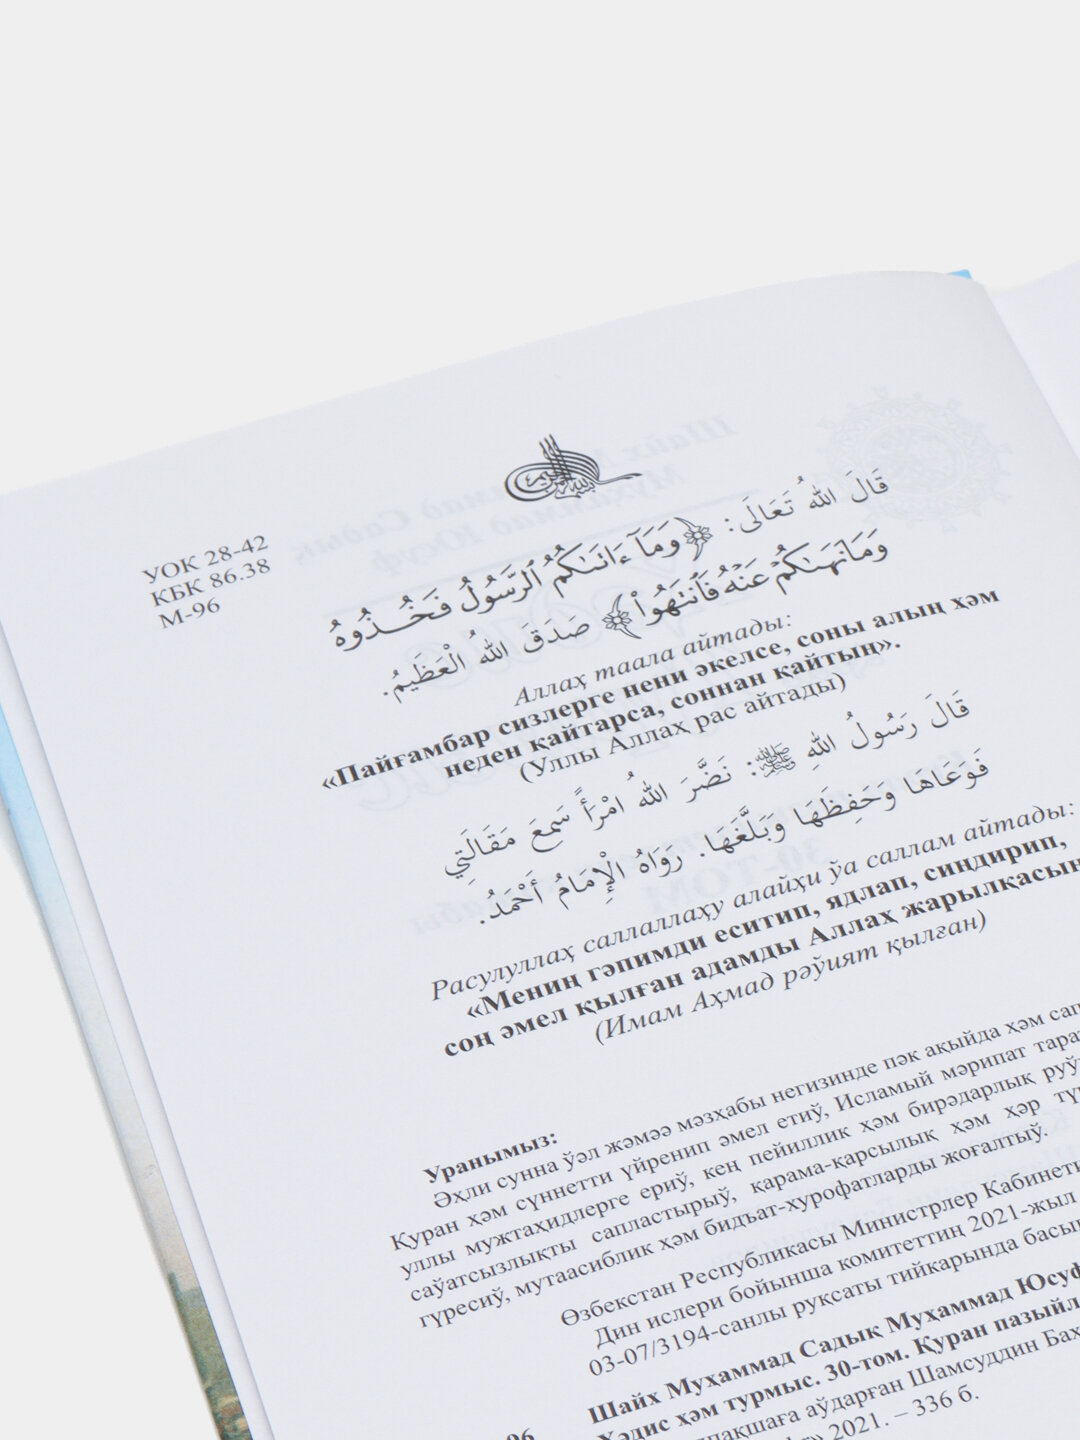 УОК 28-42
КБК 86.38
М-96
قَالَ اللهُ تَعَالَى: ﴿وَمَآ ءَاتَىٰكُمُ ٱلرَّسُولُ فَخُذُوهُ
وَمَا نَهَىٰكُمۡ عَنۡهُ فَٱنتَهُواْ﴾ صَدَقَ اللهُ الْعَظِيمُ.
Аллаҳ таала айтады:
«Пайғамбар сизлерге нени әкелсе, соны алың ҳәм
неден қайтарса, соннан қайтың».
(Уллы Аллаҳ рас айтады)
قَالَ رَسُولُ اللهِ ﷺ: نَضَّرَ اللهُ امْرَأً سَمِعَ مَقَالَتِي
فَوَعَاهَا وَحَفِظَهَا وَبَلَّغَهَا. رَوَاهُ الْإِمَامُ أَحْمَدُ.
Расулуллаҳ саллаллаҳу алайҳи ўа саллам айтады:
«Мениң гәпимди еситип, ядлап, сиңдирип,
соң әмел қылған адамды Аллаҳ жарылқасын
(Имам Аҳмад рәўият қылған)
Уранымыз:
Әҳли сунна ўәл жәмәә мәзҳабы негизинде пәк ақыйда ҳәм сап
Қуран ҳәм сүннетти үйренип әмел етиў, Исламый мәрипат тарат
уллы мужтаҳидлерге ериў, кең пейиллик ҳәм бирәдарлық руў
саўатсызлықты сапластырыў, қарама-қарсылық ҳәм ҳәр тү
гүресиў, мутаасиблик ҳәм бидъат-хурофатларды жоғалтыў.
Өзбекстан Республикасы Министрлер Кабинети
Дин ислери бойынша комитеттиң 2021-жыл
03-07/3194-санлы руқсаты тийкарында басы
Шайх Муҳаммад Садық Муҳаммад Юсуф
Ҳәдис ҳәм турмыс. 30-том. Қуран пазыйл
лпақшаға аўдарған Шамсуддин Бах
2021. – 336 б.